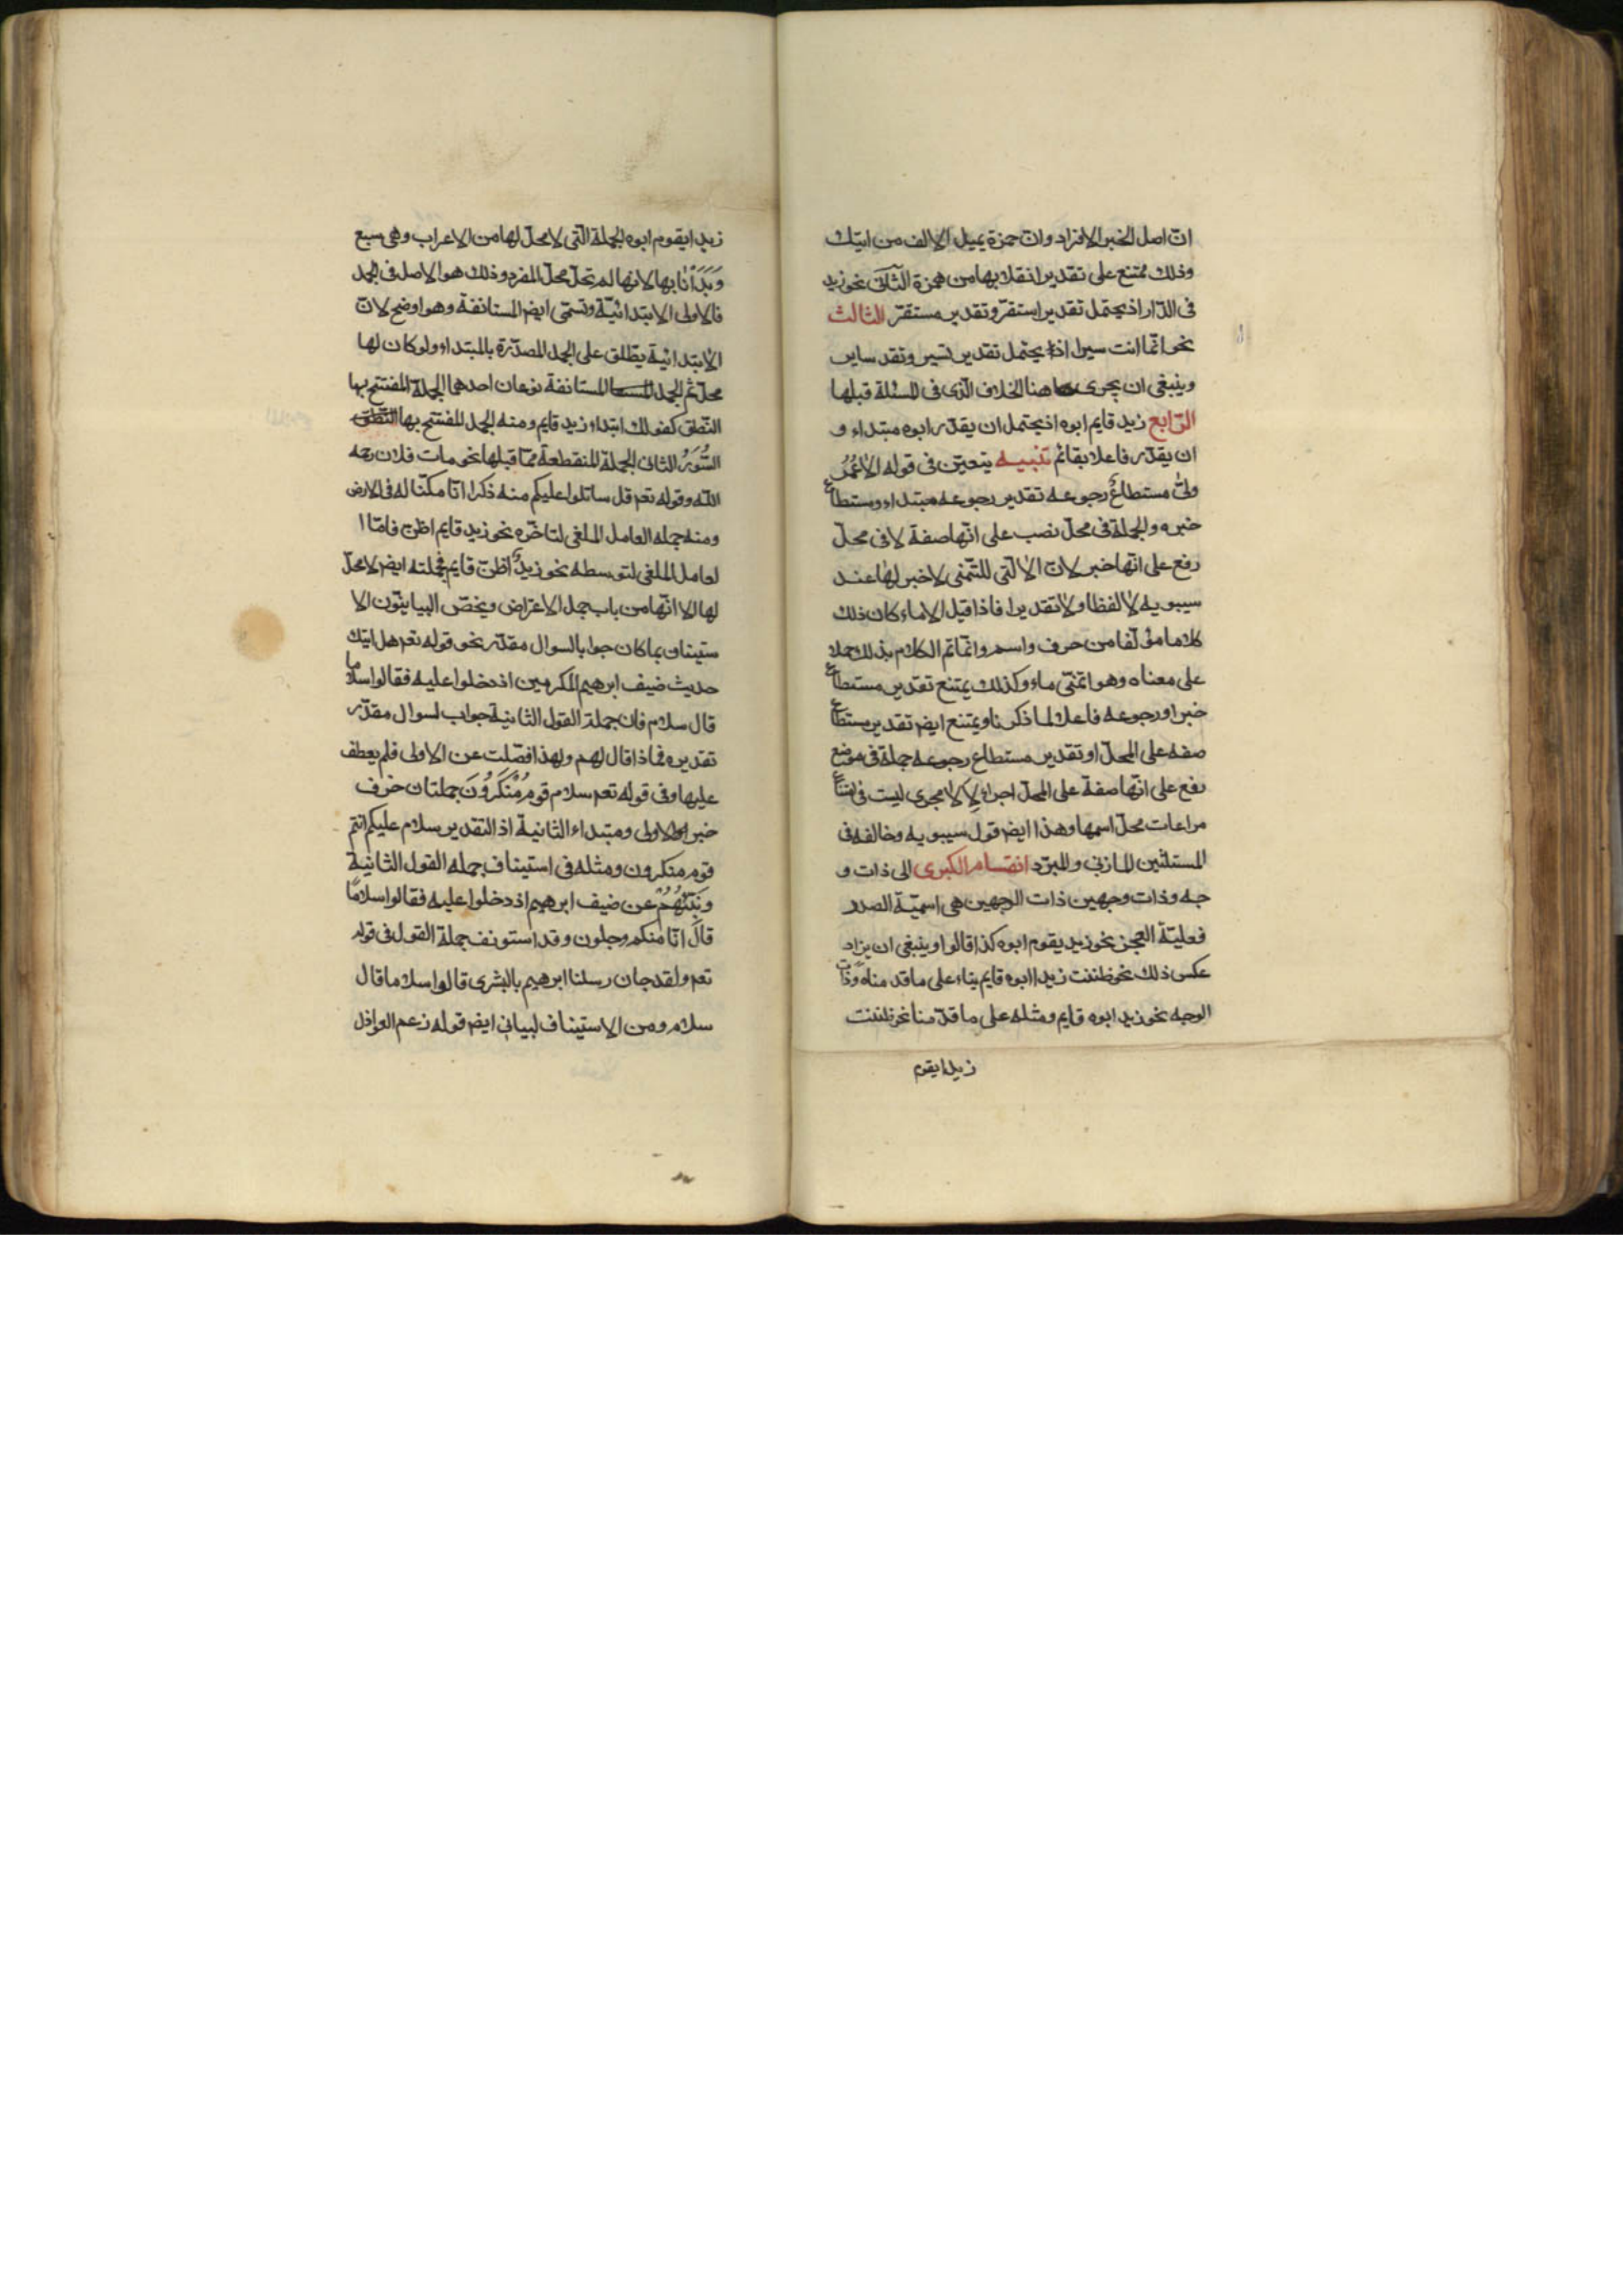 انّ اصل الخبر الافراد وانّ حمزة يميل الالف من اتيك
وذلك ممتنع على تقدير انقلابها من همزة الثانى نحو زيد
فى الدّار اذ يحتمل تقدير استقرّ وتقدير مستقرّ الثالث
نحو انّما انت سيرا اذ يحتمل تقدير تسير وتقد ساير
وينبغى ان يجرى هنا الخلاف الذى فى المسئلة قبلها
الرّابع زيد قايم ابوه اذ يحتمل ان يقدّر ابوه مبتداء و
ان يقدّر فاعلا بقائم تنبيه يتعيّن فى قوله الاعُمُرُ
ولىّ مستطاعٌ رجوعه تقدير رجوعه مبتداء ومستطاع
خبره والجملة فى محلّ نصب على انّها صفة لا فى محلّ
رفع على انّها خبر لانّ الا الّتى للتّمنى لا خبر لها عند
سيبويه لا لفظا ولا تقديرا فاذا قيل الا ماء كان ذلك
كلاما مؤلّفا من حرف واسم وانّما تم الكلام بذلك حملا
على معناه وهو اتمنّى ماء وكذلك يمتنع تقدير مستطاع
خبرا ورجوعه فاعلا لما ذكرنا ويمتنع ايضم تقدير مستطاع
صفه على المحلّ او تقدير مستطاع رجوعه جملة فى موضع
رفع على انّها صفة على المحلّ اجراء لِاَلا مجرى ليت فى امتناع
مراعات محلّ اسمها وهذا ايضم قول سيبويه وخالفه فى
المسئلتين المازنى والمبرّد انقسام الكبرى الى ذات و
جه وذات وجهين ذات الوجهين هى اسميّة الصدر
فعليّة العجز نحو زيد يقوم ابوه كذا قالوا وينبغى ان يزاد
عكس ذلك نحو ظننت زيدا ابوه قايم بناء على ما قد مناه وذات
الوجه نحو زيد ابوه قايم ومثله على ما قدّمنا نحو ظننت
زيدا يقوم
زيدا يقوم ابوه الجملة الّتى لا محلّ لها من الاعراب وهى سبع
وَبَدَأنا بها لانها لم تحلّ محلّ المفرد وذلك هو الاصل فى الجمل
فالاولى الابتدائيّة وتسمّى ايضم المستانفة وهو اوضح لانّ
الابتدائية يطلق على الجمل المصدّرة بالمبتداء ولو كان لها
محلّ ثم الجمل المستانفة نوعان احدهما الجملة المفتتح بها
النّطق كقولك ابتداء زيد قايم ومنه الجمل المفتتح بها النّطق
السُّوَرُ الثانى الجملة المنقطعة ممّا قبلها نحو مات فلان رحمه
اللّه وقوله تعم قل ساتلوا عليكم منه ذكرا انّا مكنّا له فى الارض
ومنه جمله العامل الملغى لتاخّره نحو زيد قايم اظنّ فامّا ا
لعامل الملغى لتوسطه نحو زيدٌ اظنّ قايم فجملته ايضم لا محلّ
لها الا انّها من باب جمل الاعتراض ويخصّ البيانيّون الا
ستيناف بما كان جوابا لسوال مقدّر نحو قوله تعم هل اتيك
حديث ضيف ابرهيم المكرمين اذ دخلوا عليه فقالوا سلاما
قال سلام فان جملة القول الثانية جواب لسوال مقدّر
تقديره فماذا قال لهم ولهذا فصّلت عن الاولى فلم يعطف
عليها وفى قوله تعم سلام قومٌ مُنْكَرُونَ جملتان حذف
خبر الاولى ومبتداء الثانية اذ التقدير سلام عليكم انتم
قوم منكرون ومثله فى استيناف جمله القول الثانية
ونَبِّئْهُمْ عن ضيف ابرهيم اذ دخلوا عليه فقالوا سلامًا
قالَ انّا منكم وجلون وقد استونف جملة القول فى قوله
تعم ولقد جان رسلنا ابرهيم بالبشرى قالوا سلاما قال
سلام ومن الاستيناف لبيانى ايضم قوله زعم العواذل